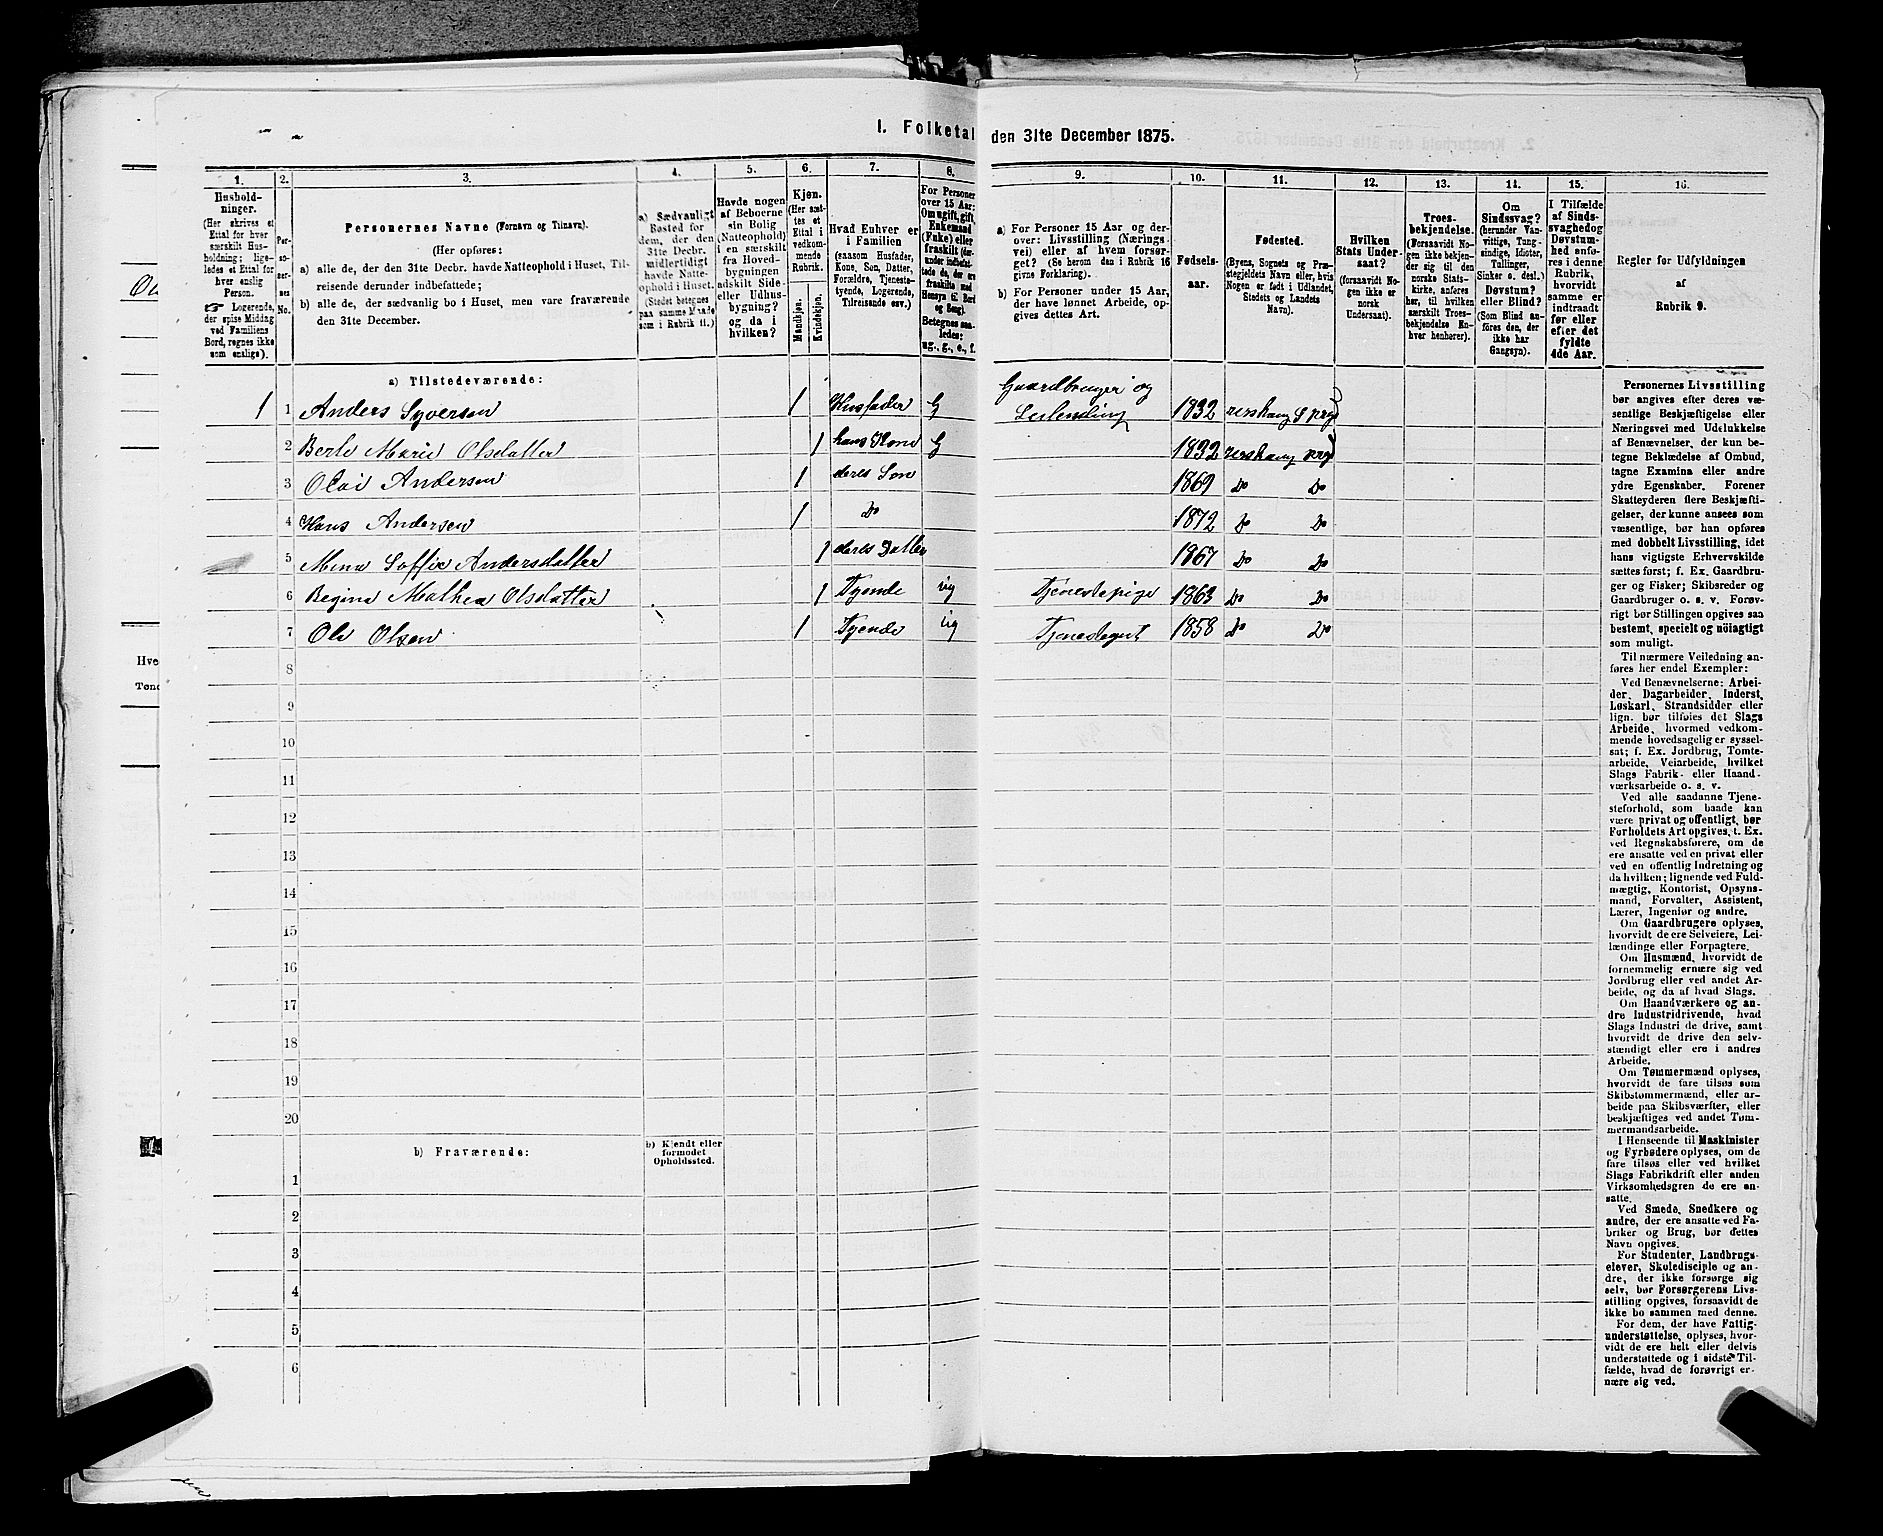 1. Folketal den 31te December 1875.
1. 2. 3. 4. 5. 6. 7. 8. 9. 10. 11. 12. 13. 14. 15. 16.
Hushold-
ninger.
(Her skrives et
Ettal for hver
særskilt Hus-
holdning; lige-
ledes et Ettal for
hver enslig
Person.
☞ Logerende,
der spise Middag
ved Familiens
Bord, regnes ikke
som enslige).
Per-
so-
ner-
nes
No.
Personernes Navne (Fornavn og Tilnavn).
(Her opføres:
a) alle de, der den 31te Decbr. havde Natteophold i Huset, Til-
reisende derunder indbefattede;
b) alle de, der sædvanlig bo i Huset, men vare fraværende
den 31te December.
a) Sædvanligt
Bosted for
dem, der den
31te Decbr.
midlertidigt
havde Natte-
ophold i Huset.
(Stedet betegnes
paa samme Maade
som i Rubrik 11.)
Havde nogen
af Beboerne
sin Bolig
(Natteophold)
i en særskilt
fra Hoved-
bygningen
adskilt Side-
eller Udhus-
bygning?
og da i
hvilken?
Kjøn.
(Her sæt-
tes et
Ettal i
vedkom-
mende
Rubrik.
Mandkjøn.
Kvindekjøn.
Hvad Enhver er
i Familien
(saasom Husfader,
Kone, Søn, Datter,
Forældre, Tjeneste-
tyende, Logerende,
Tilreisende osv.)
For Personer
over 15 Aar:
Om ugift, gift,
Enkemand
(Enke) eller
fraskilt
Betegnes saa-
ledes:
ug., g., e., f.
a) For Personer 15 Aar og der-
over: Livsstilling (Nærings-
vei) eller af hvem forsør-
get? (Se herom den i Rubrik 16
givne Forklaring).
b) For Personer under 15 Aar,
der have lønnet Arbeide, op-
gives dettes Art.
Fødsels-
aar.
Fødested.
(Byens, Sognets og Præ-
stegjeldets Navn eller, hvis
Nogen er født i Udlandet,
Stedets og Landets
Navn).
Hvilken
Stats Under-
saat?
(forsaavidt No-
gen ikke er
norsk
Undersaat).
Troes-
bekjendelse.
(Forsaavidt No-
gen ikke bekjen-
der sig til den
norske Stats-
kirke, anføres
her, til hvilken
særskilt Troes-
bekjendelse En-
hver henhører).
Om
Sindssvag?
(herunder Van-
vittige, Tung-
sindige, Idioter,
Tullinger,
Sinker o. desl.)
Døvstum?
eller Blind?
(Som Blind an-
føres den, der
ikke har
Gangsyn).
I Tilfælde
af Sinds-
svaghed og
Døvstum-
hed anfø-
res i denne
Rubrik,
hvorvidt
samme er
indtraadt
før eller
efter det
fyldte
4de Aar.
Regler for Udfyldningen
af
Rubrik 9.
a) Tilstedeværende:
Gaardbruger og
1 1 Anders Syversen 1 Husfader G Leilending 1832
2 Berte Marie Olsdatter 1 hans Kone G 1832
3 Olai Andersen 1 deres Søn 1869 Do Do
4 Hans Andersen 1 Do 1872 Do Do
5 Mina Soffie Andersdatter 1 deres Datter 1867 Do Do
6 Regine Mathea Olsdatter 1 Tyende ug Tjenestepige 1863 Do Do
7 Ole Olsen 1 Tyende ug Tjenestegut 1858 Do Do
8
9
10
11
12
13
14
15
16
17
18
19
20
b) Fraværende:
b) Kjendt eller
formodet
Opholdssted.
1
2
3
4
5
6
Personernes Livsstilling
bør angives efter deres væ-
sentlige Beskjæftigelse eller
Næringsvei med Udelukkelse
af Benævnelser, der kun be-
tegne Beklædelse af Ombud,
tagne Examina eller andre
ydre Egenskaber. Forener
Skatteyderen flere Beskjæfti-
gelser, der kunne ansees som
væsentlige, bør han opføres
med dobbelt Livsstilling, idet
hans vigtigste Erhvervskilde
sættes først; f. Ex. Gaardbru-
ger og Fisker; Skibsreder og
Gaardbruger o. s. v. Forøv-
rigt bør Stillingen opgives saa
bestemt, specielt og nøiagtigt
som muligt.
Til nærmere Veiledning an-
føres her endel Exempler:
Ved Benævnelserne: Arbei-
der, Dagarbeider, Inderst,
Løskarl, Strandsidder eller
lign. bør tilføies det Slags
Arbeide, hvormed vedkom-
mende hovedsagelig er syssel-
sat; f. Ex. Jordbrug, Tomte-
arbeide, Veiarbeide, hvilket
Slags Fabrik- eller Haand-
værksarbeide o. s. v.
Ved alle saadanne Tjene-
steforhold, som baade kan
være privat og offentligt, bør
Forholdets Art opgives, t. Ex.
ved Regnskabsførere, om de
ere ansatte ved en privat eller
ved en offentlig Indretning og
da hvilken; lignende ved Fuld-
mægtig, Kontorist, Opsyns-
mand, Forvalter, Assistent,
Lærer, Ingeniør og andre.
Om Gaardbrugere oplyses,
hvorvidt de ere Selveiere, Lei-
lændinge eller Forpagtere.
Om Husmænd, hvorvidt de
fornemmelig ernære sig ved
Jordbrug eller ved andet Ar-
beide, og da af hvad Slags.
Om Haandværkere og an-
dre Industridrivende, hvad
Slags Industri de drive, samt
hvorvidt de drive den selv-
stændigt eller ere i andres
Arbeide.
Om Tømmermænd oplyses,
hvorvidt de fare tilsøs som
Skibstømmermænd, eller ar-
beide paa Skibsværfter, eller
beskjæftiges ved andet Tøm-
mermandsarbeide.
I Henseende til Maskinister
og Fyrbødere oplyses, om de
fare tilsøs eller ved hvilket
Slags Fabrikdrift eller anden
Virksomhedsgren de ere an-
satte.
Ved Smede, Snedkere og
andre, der ere ansatte ved Fa-
briker og Brug, bør dettes
Navn opgives.
For Studenter, Landbrugs-
elever, Skoledisciple og an-
dre, der ikke forsørge sig
selv, bør Forsørgerens Livs-
stilling opgives, forsaavidt de
ikke bo sammen med denne.
For dem, der have Fattig-
understøttelse, oplyses, hvor-
vidt de ere helt eller delvis
understøttede og i sidste Til-
fælde, hvad de forøvrigt er-
nære sig ved.
Hve
Tønd